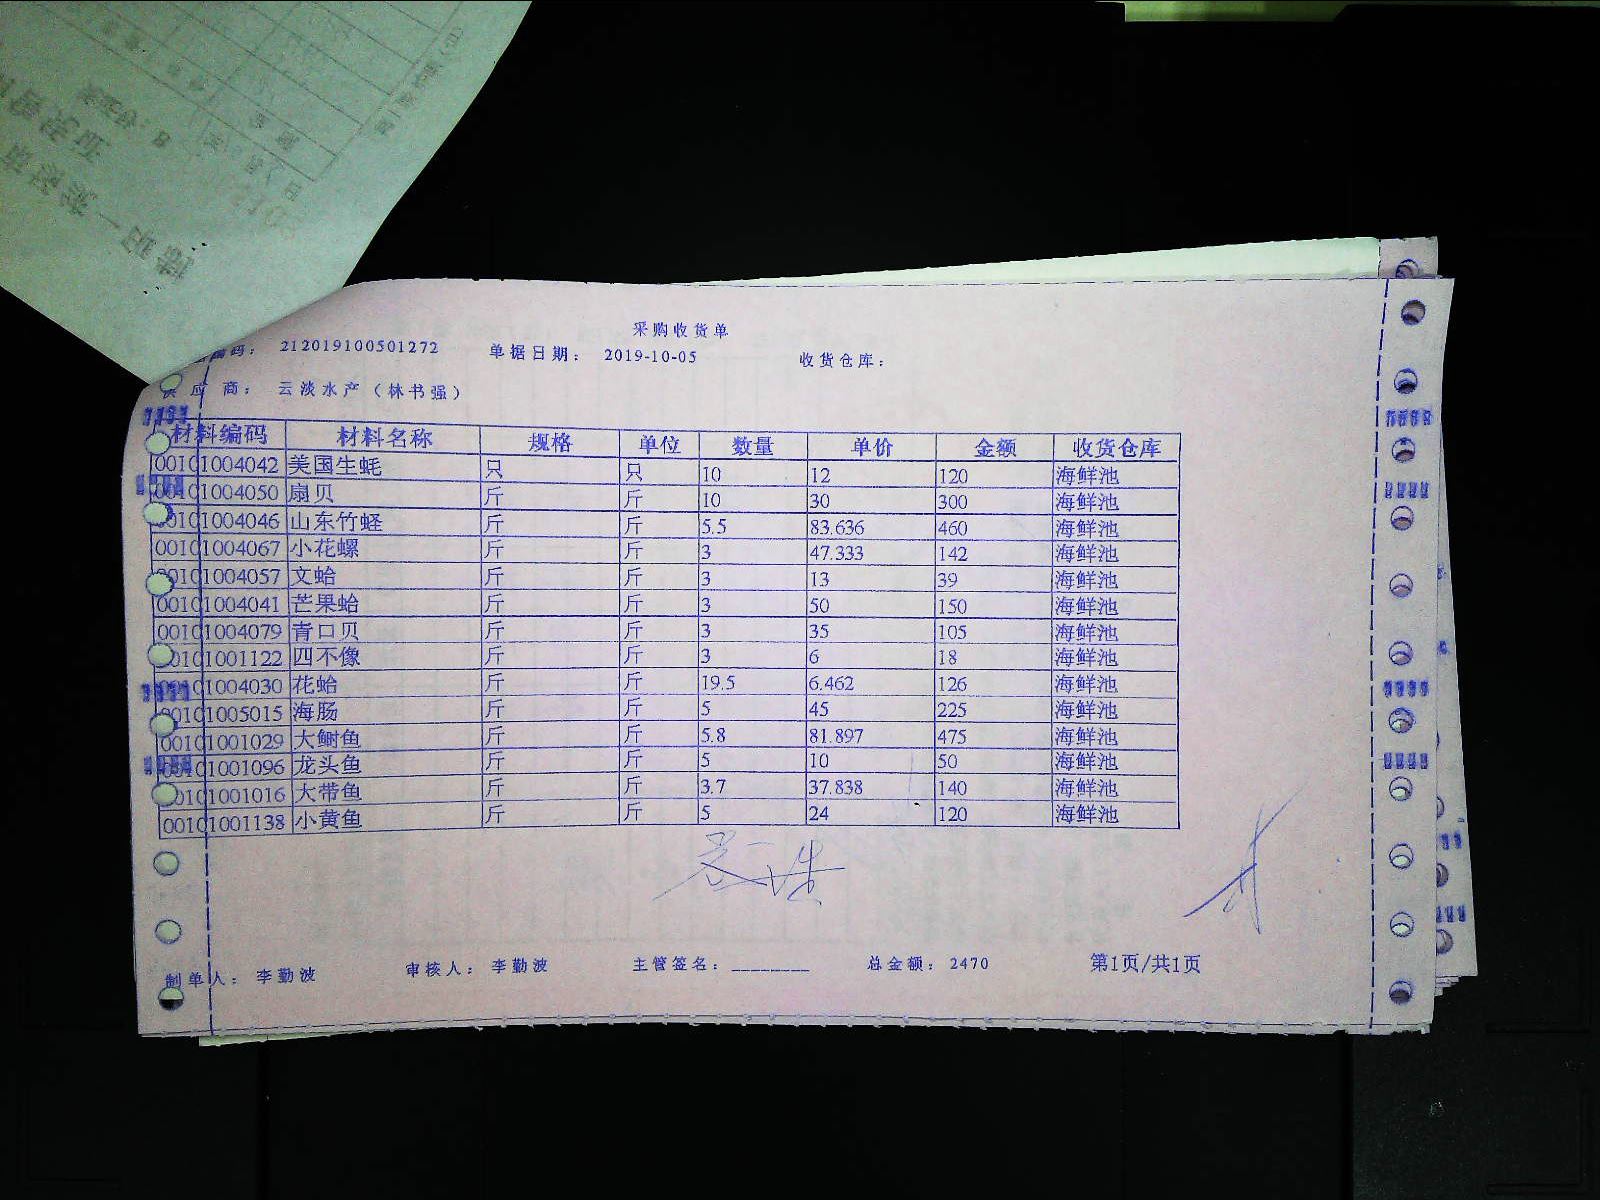 采购收货单
编码： 212019100501272 单据日期： 2019-10-05 收货仓库：
供应商： 云淡水产（林书强）
材料编码 材料名称 规格 单位 数量 单价 金额 收货仓库
00101004042 美国生蚝 只 只 10 12 120 海鲜池
00101004050 扇贝 斤 斤 10 30 300 海鲜池
00101004046 山东竹蛏 斤 斤 5.5 83.636 460 海鲜池
00101004067 小花螺 斤 斤 3 47.333 142 海鲜池
00101004057 文蛤 斤 斤 3 13 39 海鲜池
00101004041 芒果蛤 斤 斤 3 50 150 海鲜池
00101004079 青口贝 斤 斤 3 35 105 海鲜池
00101001122 四不像 斤 斤 3 6 18 海鲜池
00101004030 花蛤 斤 斤 19.5 6.462 126 海鲜池
00101005015 海肠 斤 斤 5 45 225 海鲜池
00101001029 大鲥鱼 斤 斤 5.8 81.897 475 海鲜池
00101001096 龙头鱼 斤 斤 5 10 50 海鲜池
00101001016 大带鱼 斤 斤 3.7 37.838 140 海鲜池
00101001138 小黄鱼 斤 斤 5 24 120 海鲜池
制单人： 李勤波 审核人： 李勤波 主管签名：________ 总金额： 2470 第1页/共1页